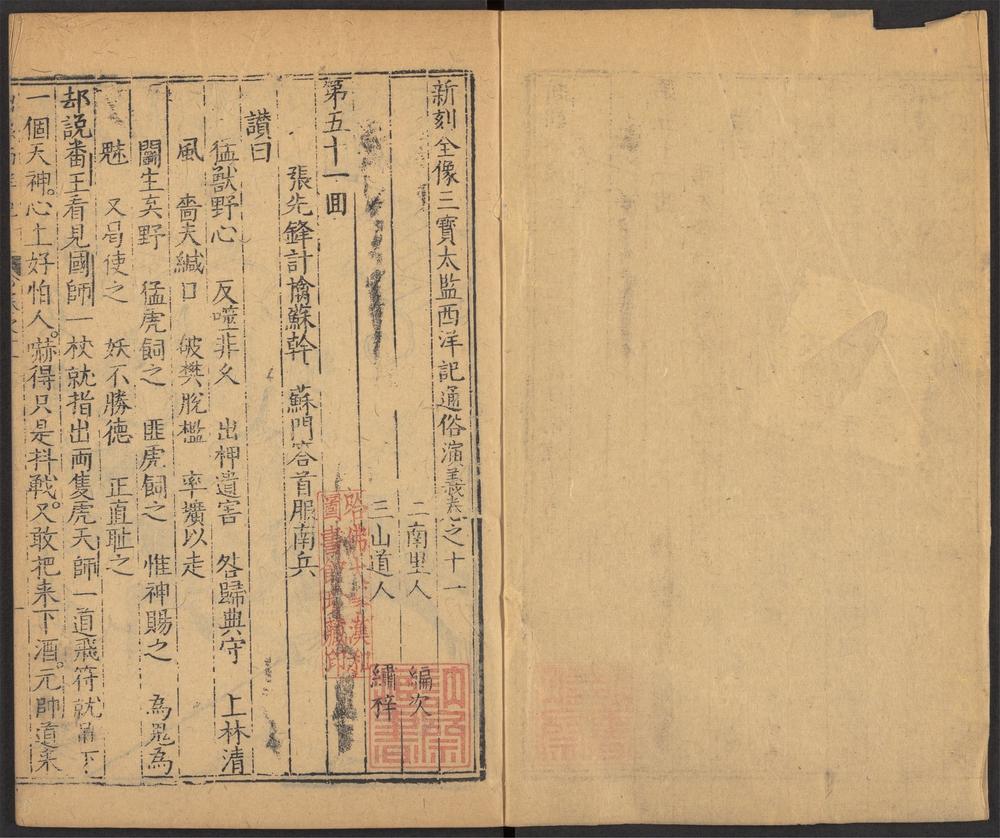 新刻全像三寶太監西洋記通俗演義卷之十一
二南里人 編次
三山道人 繡梓
第五十一囬
張先鋒計擒蘇幹 蘇門答首服南兵
讃曰
猛獸野心 反噬非久 出柙遺害 咎歸典守 上林清
風 嗇夫緘口 破樊脫檻 率壙以走
鬭生矣野 猛虎飼之 匪虎飼之 惟神賜之 為鬼為
魅 又曷使之 妖不勝德 正直耻之
却說番王看見國師一杖就指出両隻虎天師一道飛符就吊下
一個天神。心上好怕人。嚇得只是抖戰。又敢把来下酒。元帥道来
哈佛大學漢和
圖書館珍藏印